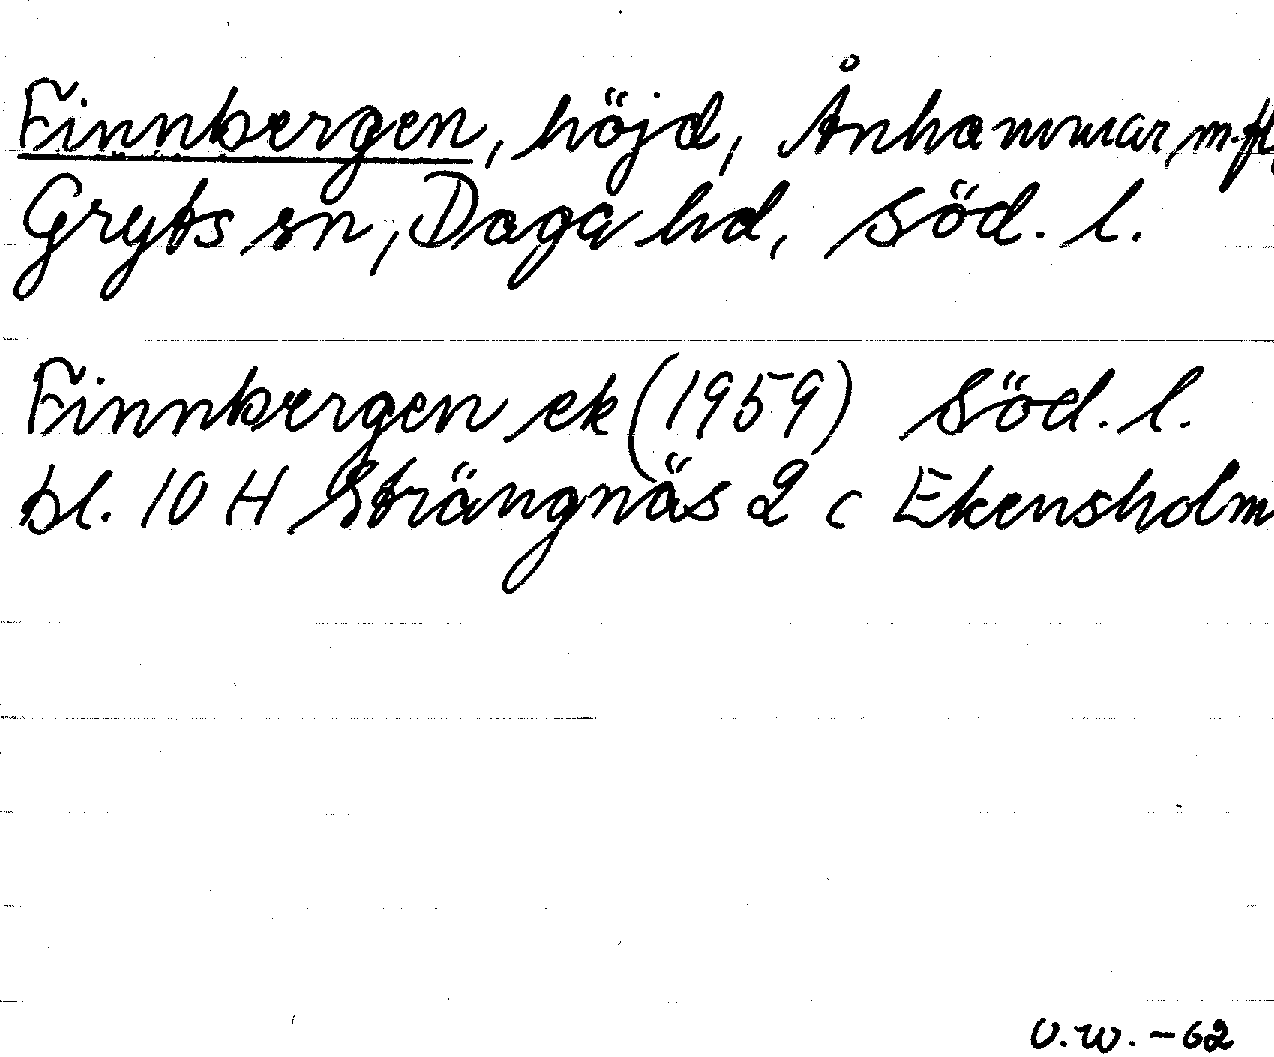 Finnbergen, höjd, Ånhammar, m.fl,
Gryts sn, Daga hd, Söd. l.
Finnbergen ek (1959) Söd. l.
bl. 10 H Strängnäs 2 c Ekensholm
U.W. -62